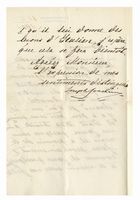 qu'il lui donne des
leçons d'Italien, j'espère
que cela se fera bientôt.
Agréez Monsieur,
l'expression de mes
sentiments distingués